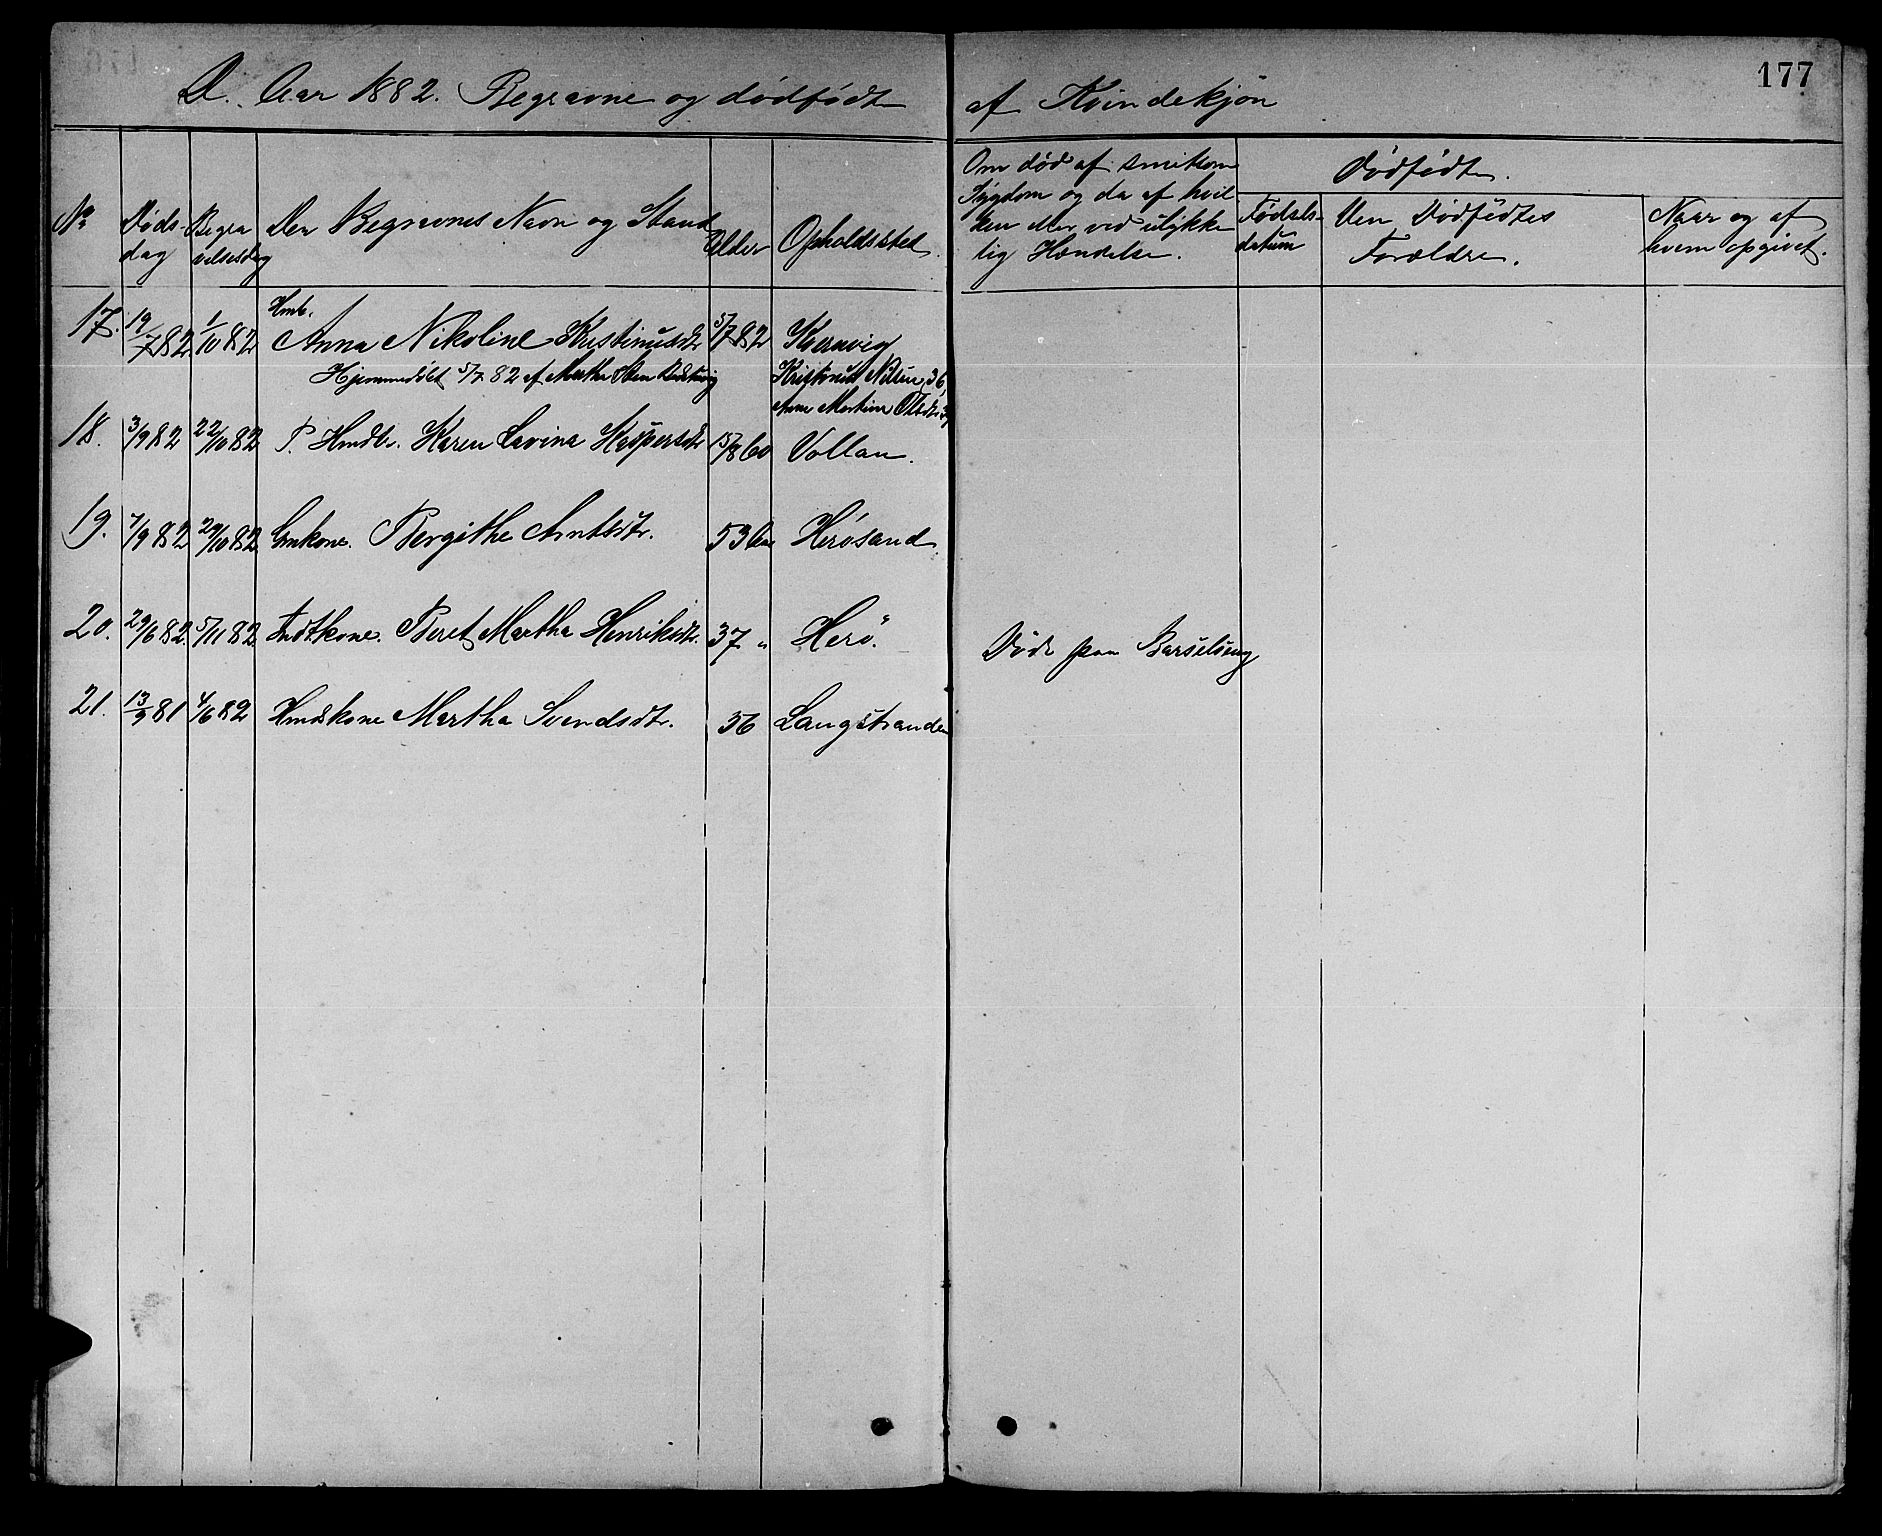 177
D. Aar 1882. Begravne og dødfødte af Kvindekjøn
No
Døds-
dag
Begra
velsesdag
Den Begravnes Navn og Stand
Alder
Opholdssted.
Om død af smitsom
Sygdom og da af hvil
ken eller ved ulykke
lig Hændelse.
Dødfødte.
Fødsels-
datum
Den Dødfødtes
Forældre.
Naar og af
hvem opgivet.
Hmb.
17. 19/7 82 1/10 82 Anna Nikoline Kristinusdtr 5/7 82 Kornvig
Hjemmedøbt 5/7 82 af Martha Kristinus Nilsen, 36,
Anne Martine Olsdtr
18. 3/9 82 22/10 82 P. Hmdbr. Karen Lavina Kaspersdtr 15/8 60 Vollan.
19. 7/9 82 29/10 82 Gmkone. Bergithe Arntsdtr. 53 Aar Herøsand
20. 29/6 82. 5/11 82. Indtkone. Beret Martha Henriksdtr. 37 " Herø. Døde paa Barselseng
21. 13/9 81 4/6 82 Hmdskone Martha Svendsdtr. 56 Langstranden